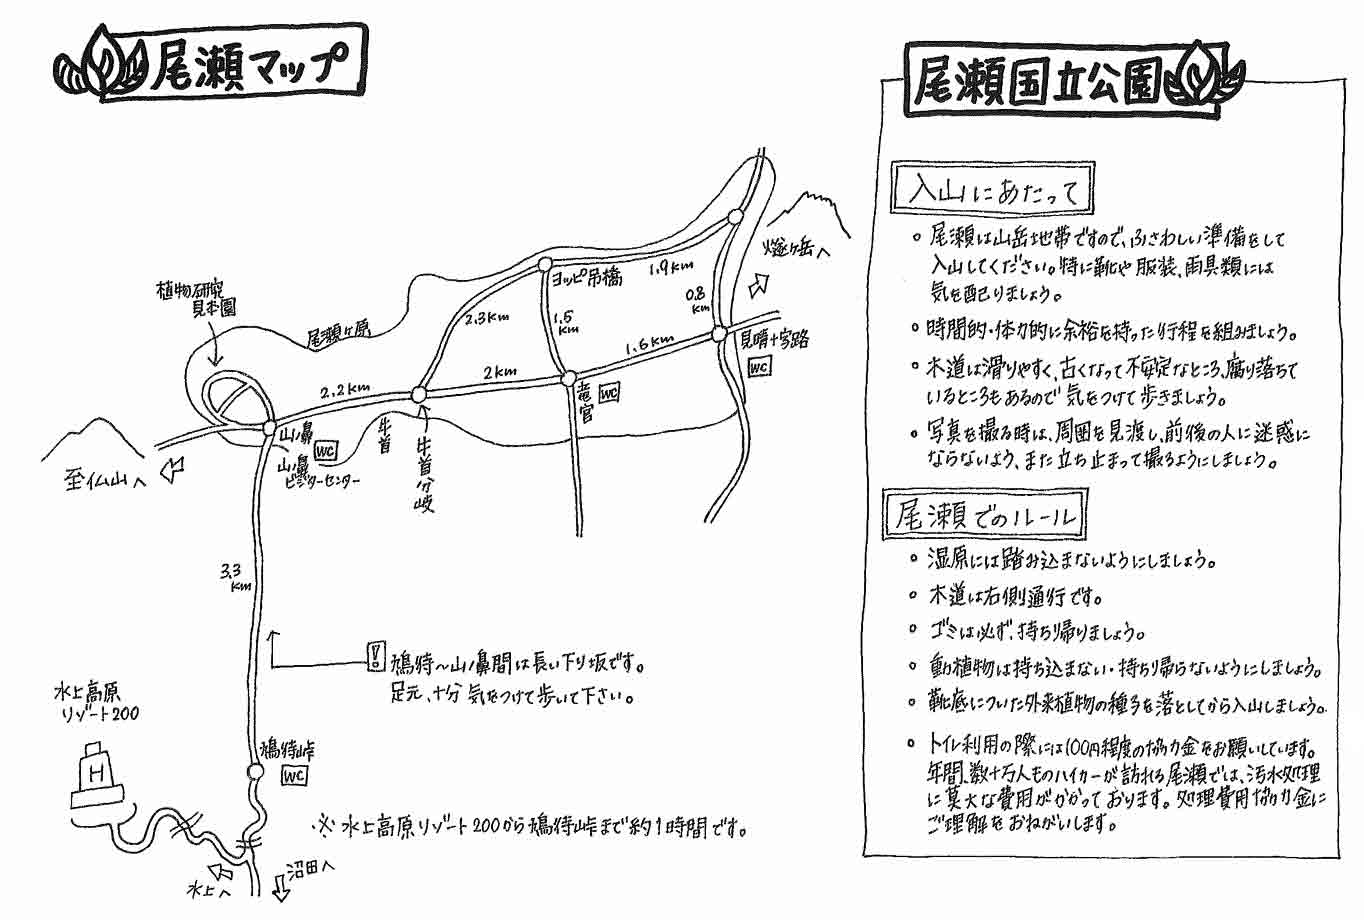 尾瀬マップ
植物研究
見本園
尾瀬ヶ原
ヨッピ吊橋
1.9km
燧ヶ岳へ
0.8
km
2.3km
1.5
km
1.6km
見晴十字路
WC
2km
2.2km
竜宮
WC
牛首
牛首分岐
山ノ鼻
WC
山ノ鼻
ビジターセンター
至仏山へ
3.3
km
! 鳩待〜山ノ鼻間は長い下り坂です。
足元、十分気をつけて歩いて下さい。
水上高原
リゾート200
H
鳩待峠
WC
※水上高原リゾート200から鳩待峠まで約1時間です。
沼田へ
水上へ
尾瀬国立公園
入山にあたって
◦ 尾瀬は山岳地帯ですので、ふさわしい準備をして
入山してください。特に靴や服装、雨具類には
気を配りましょう。
◦ 時間的・体力的に余裕を持った行程を組みましょう。
◦ 木道は滑りやすく、古くなって不安定なところ、腐り落ちて
いるところもあるので気をつけて歩きましょう。
◦ 写真を撮る時は、周囲を見渡し、前後の人に迷惑に
ならないよう、また立ち止まって撮るようにしましょう。
尾瀬でのルール
◦ 湿原には踏み込まないようにしましょう。
◦ 木道は右側通行です。
◦ ゴミは必ず、持ち帰りましょう。
◦ 動植物は持ち込まない・持ち帰らないようにしましょう。
◦ 靴底についた外来植物の種子を落としてから入山しましょう。
◦ トイレ利用の際には100円程度の協力金をお願いしています。
年間、数十万人ものハイカーが訪れる尾瀬では、汚水処理
に莫大な費用がかかっております。処理費用協力金に
ご理解をおねがいします。